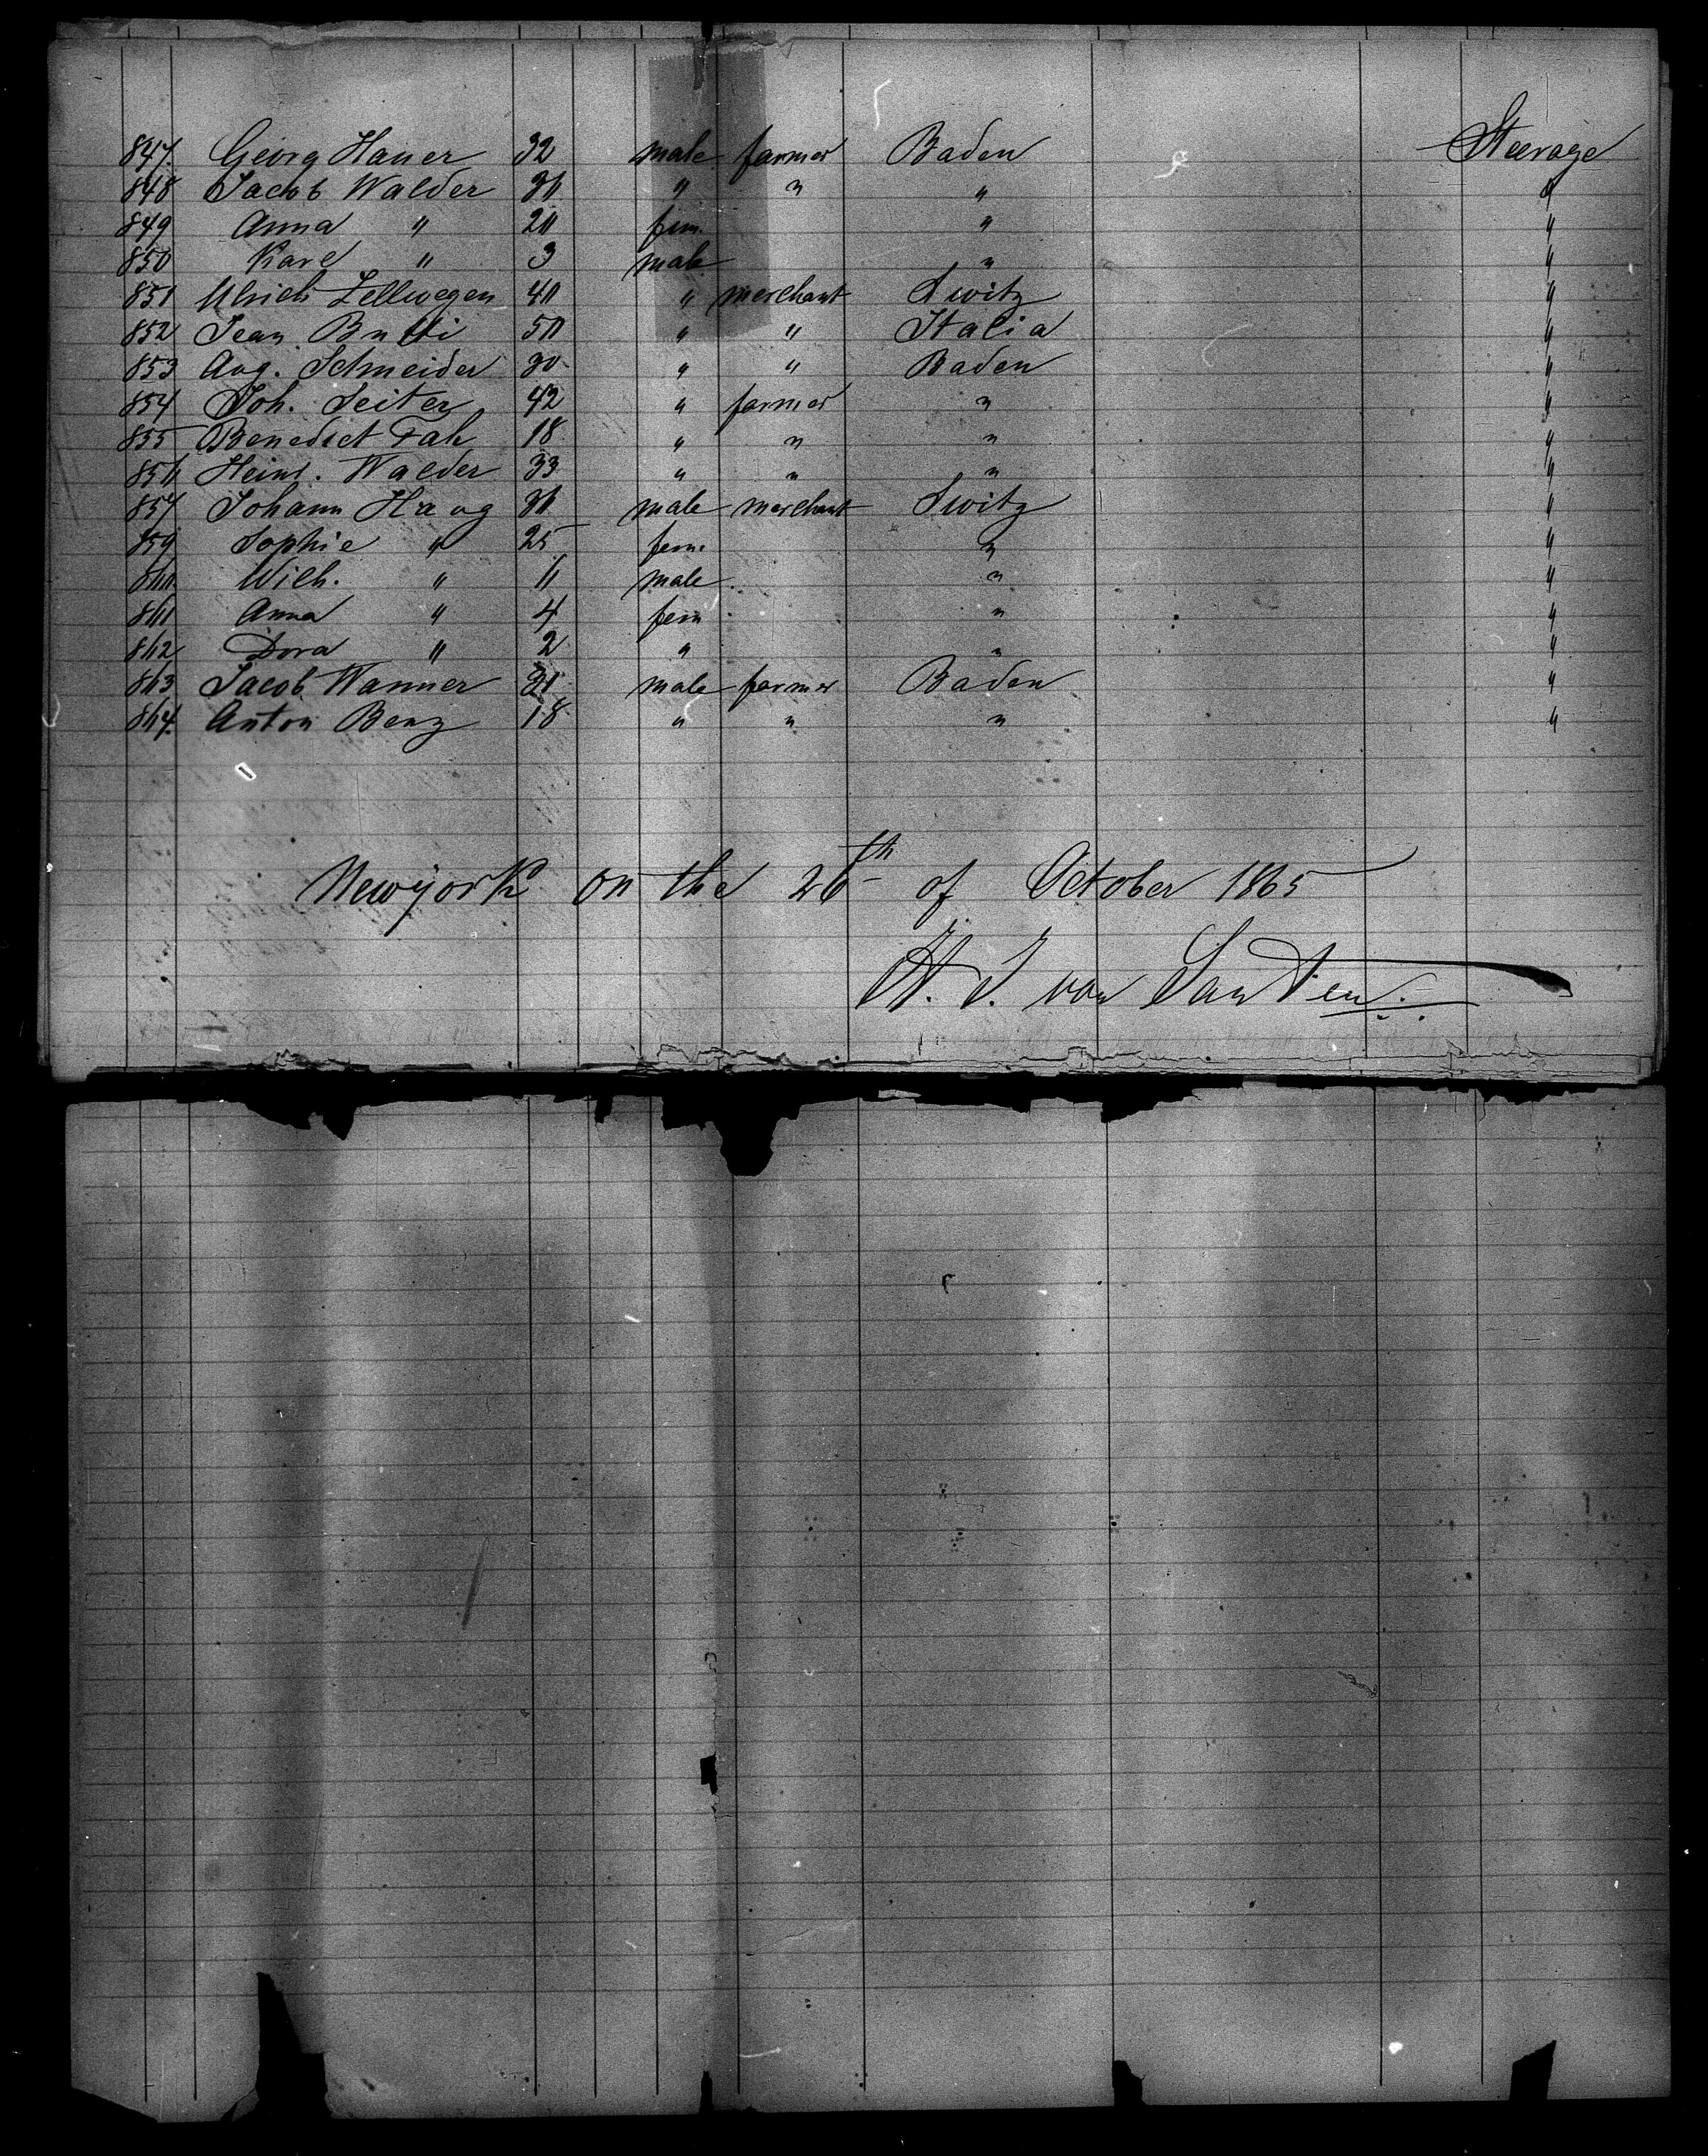 847. Georg Hauer 32 male farmer Baden Steerage
848 Jacob Walder 36 " " " "
849 Anna " 26 fem. " "
850 Karl " 3 male " "
851 Ulrich Zellwegen 40 " merchant Switz "
852 Jean 50 " " Italia "
853 Aug. Schneider 30 " " Baden "
854 Joh. Seiter 42 " farmer " "
855 Benedict Fah 18 " " " "
856 Heinr. Walder 33 " " " "
857 Johann Haug 36 male merchant Switz "
859 Sophie " 25 fem. " "
860 Wilh. " 6 male " "
861 Anna " 4 fem " "
862 Dora " 2 " " "
863 Jacob Wanner 31 male farmer Baden "
864. Anton Benz 18 " " " "
Newyork on the 26th of October 1865
H. J. von Santen.